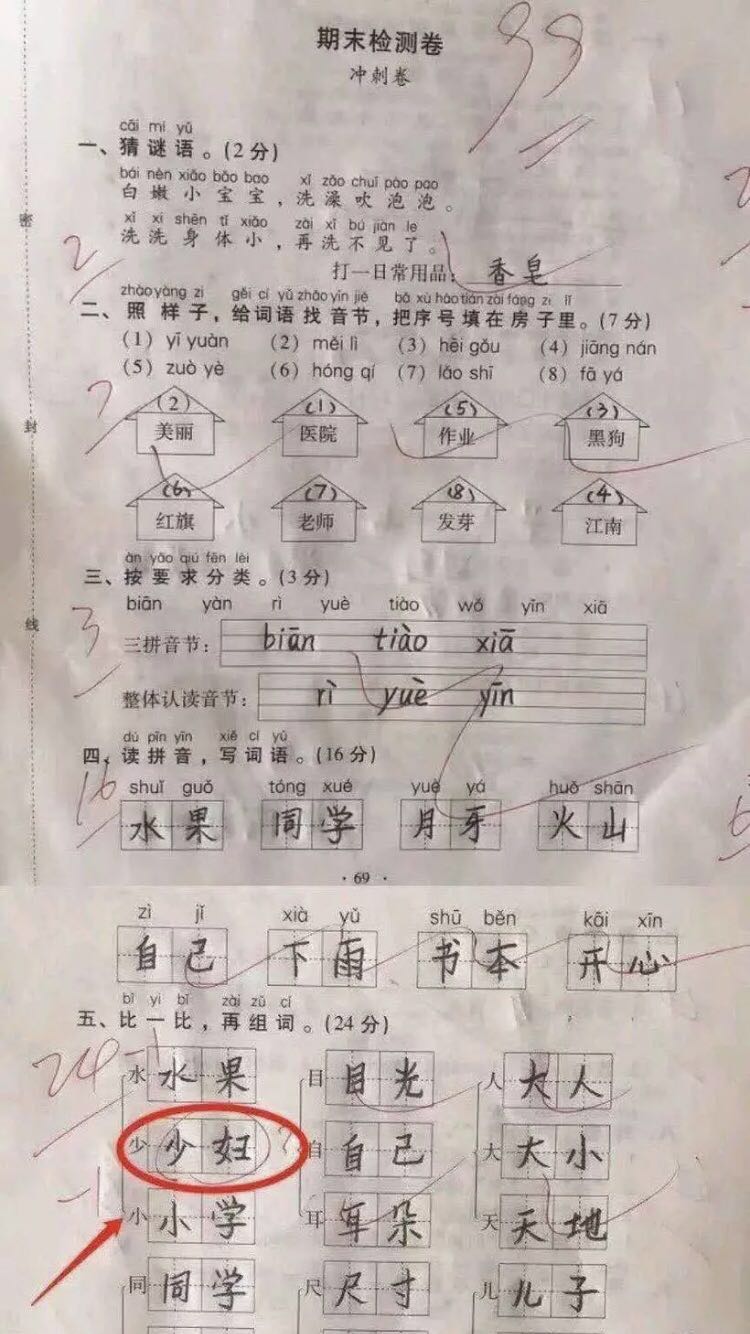 期末检测卷
冲刺卷
99
cāi mí yǔ
一、猜谜语。(2分)
bái nèn xiǎo bǎo bao xǐ zǎo chuī pào pao
白嫩小宝宝，洗澡吹泡泡。
xǐ xi shēn tǐ xiǎo zài xǐ bú jiàn le
洗洗身体小，再洗不见了。
2
打一日常用品：香皂
zhào yàng zi gěi cí yǔ zhǎo yīn jié bǎ xù hào tián zài fáng zi lǐ
二、照样子，给词语找音节，把序号填在房子里。(7分)
(1) yī yuàn (2) měi lì (3) hēi gǒu (4) jiāng nán
(5) zuò yè (6) hóng qí (7) lǎo shī (8) fā yá
7
(2) (1) (5) (3)
美丽 医院 作业 黑狗
(6) (7) (8) (4)
红旗 老师 发芽 江南
àn yāo qiú fēn lèi
三、按要求分类。(3分)
biān yàn rì yuè tiào wǒ yīn xiā
3
三拼音节： biān tiào xiā
整体认读音节： rì yuè yīn
dú pīn yīn xiě cí yǔ
四、读拼音，写词语。(16分)
16
shuǐ guǒ tóng xué yuè yá huǒ shān
水果 同学 月牙 火山
· 69 ·
密
封
线
zì jǐ xià yǔ shū běn kāi xīn
自己 下雨 书本 开心
bǐ yi bǐ zài zǔ cí
五、比一比，再组词。(24分)
24-1
水 水果 目 目光 人 大人
少 少妇 ? 自 自己 大 大小
-1
小 小学 耳 耳朵 天 天地
同 同学 尺 尺寸 儿 儿子